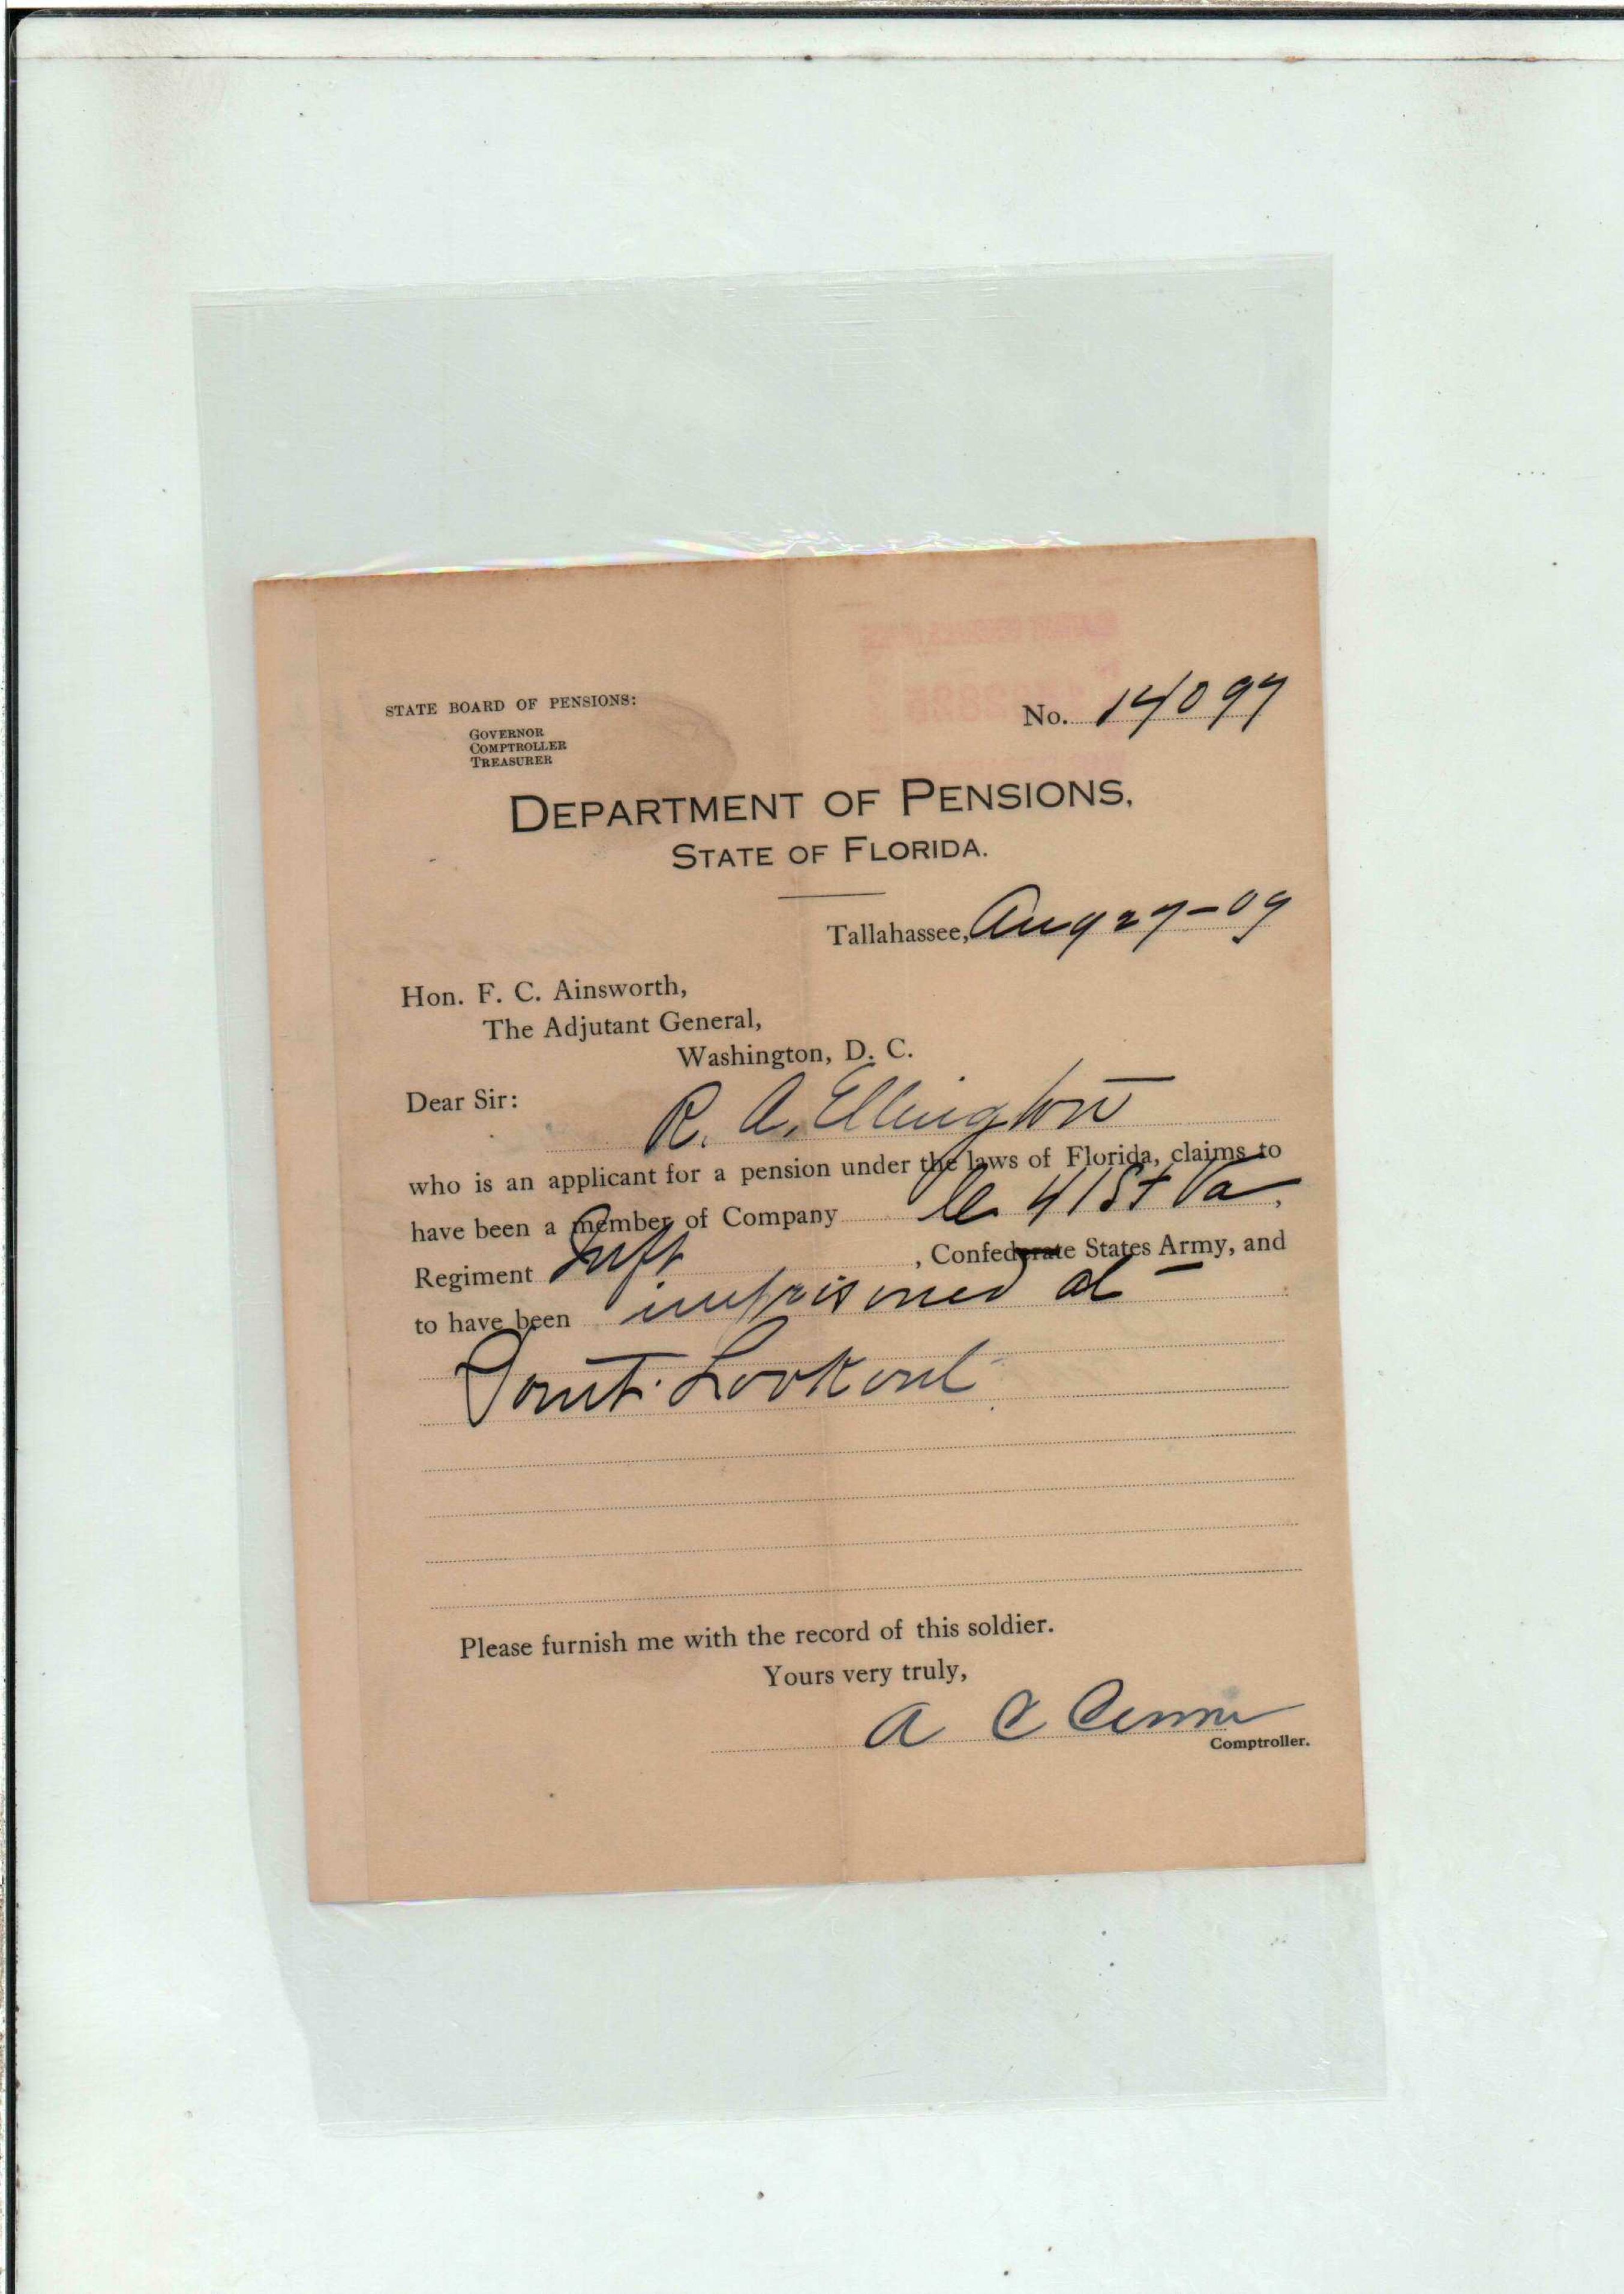 STATE BOARD OF PENSIONS:
GOVERNOR
COMPTROLLER
TREASURER
No. 14097
DEPARTMENT OF PENSIONS,
STATE OF FLORIDA.
Tallahassee, Aug 27-09
Hon. F. C. Ainsworth,
The Adjutant General,
Washington, D. C.
Dear Sir:
R. A. Ellington
who is an applicant for a pension under the laws of Florida, claims to
have been a member of Company 41st Va,
Regiment Inft, Confederate States Army, and
to have been imprisoned at
Point Lookout
Please furnish me with the record of this soldier.
Yours very truly,
A C
Comptroller.